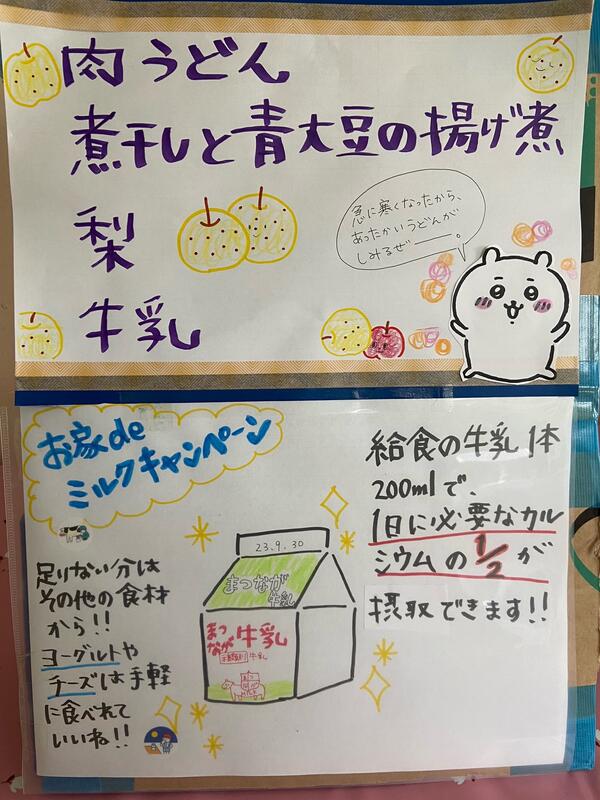 肉うどん
煮干しと青大豆の揚げ煮
梨
牛乳
急に寒くなったから、
あったかいうどんが
しみるぜ――。
お家de
ミルクキャンペーン
給食の牛乳1本
200mlで、
1日に必要なカル
シウムの1/2が
摂取できます!!
足りない分は
その他の食材
から!!
ヨーグルトや
チーズは手軽
に食べれて
いいね!!
23.9.30
まつなが
牛乳
まつ
なが牛乳
牛乳